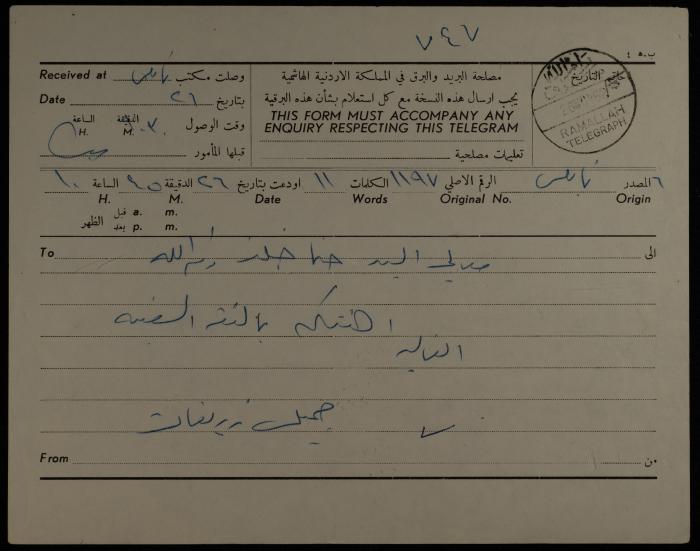 ٧٤٧
ب.ﻫ ٤
Received at نابلس وصلت مكتب
Date ٢٦ بتاريخ
الساعة الدقيقة وقت الوصول
H. M.
قبلها المأمور
مصلحة البريد والبرق في المملكة الاردنية الهاشمية
يجب ارسال هذه النسخة مع كل استعلام بشأن هذه البرقية
THIS FORM MUST ACCOMPANY ANY
ENQUIRY RESPECTING THIS TELEGRAM
تعليمات مصلحية
خاتم التاريخ
RAMALLAH
TELEGRAPH
المصدر نابلس الرقم الاصلي ١١٩٧ الكلمات ١١ اودعت بتاريخ ٢٦ الدقيقة ٤٥ الساعة ١٠
Origin Original No. Words Date M. H.
قبل a. m.
الظهر
بعد p. m.
To الى
معالي السيد حنا خلف رام الله
اهنئكم بالثقة
الغالية
جميل
From من